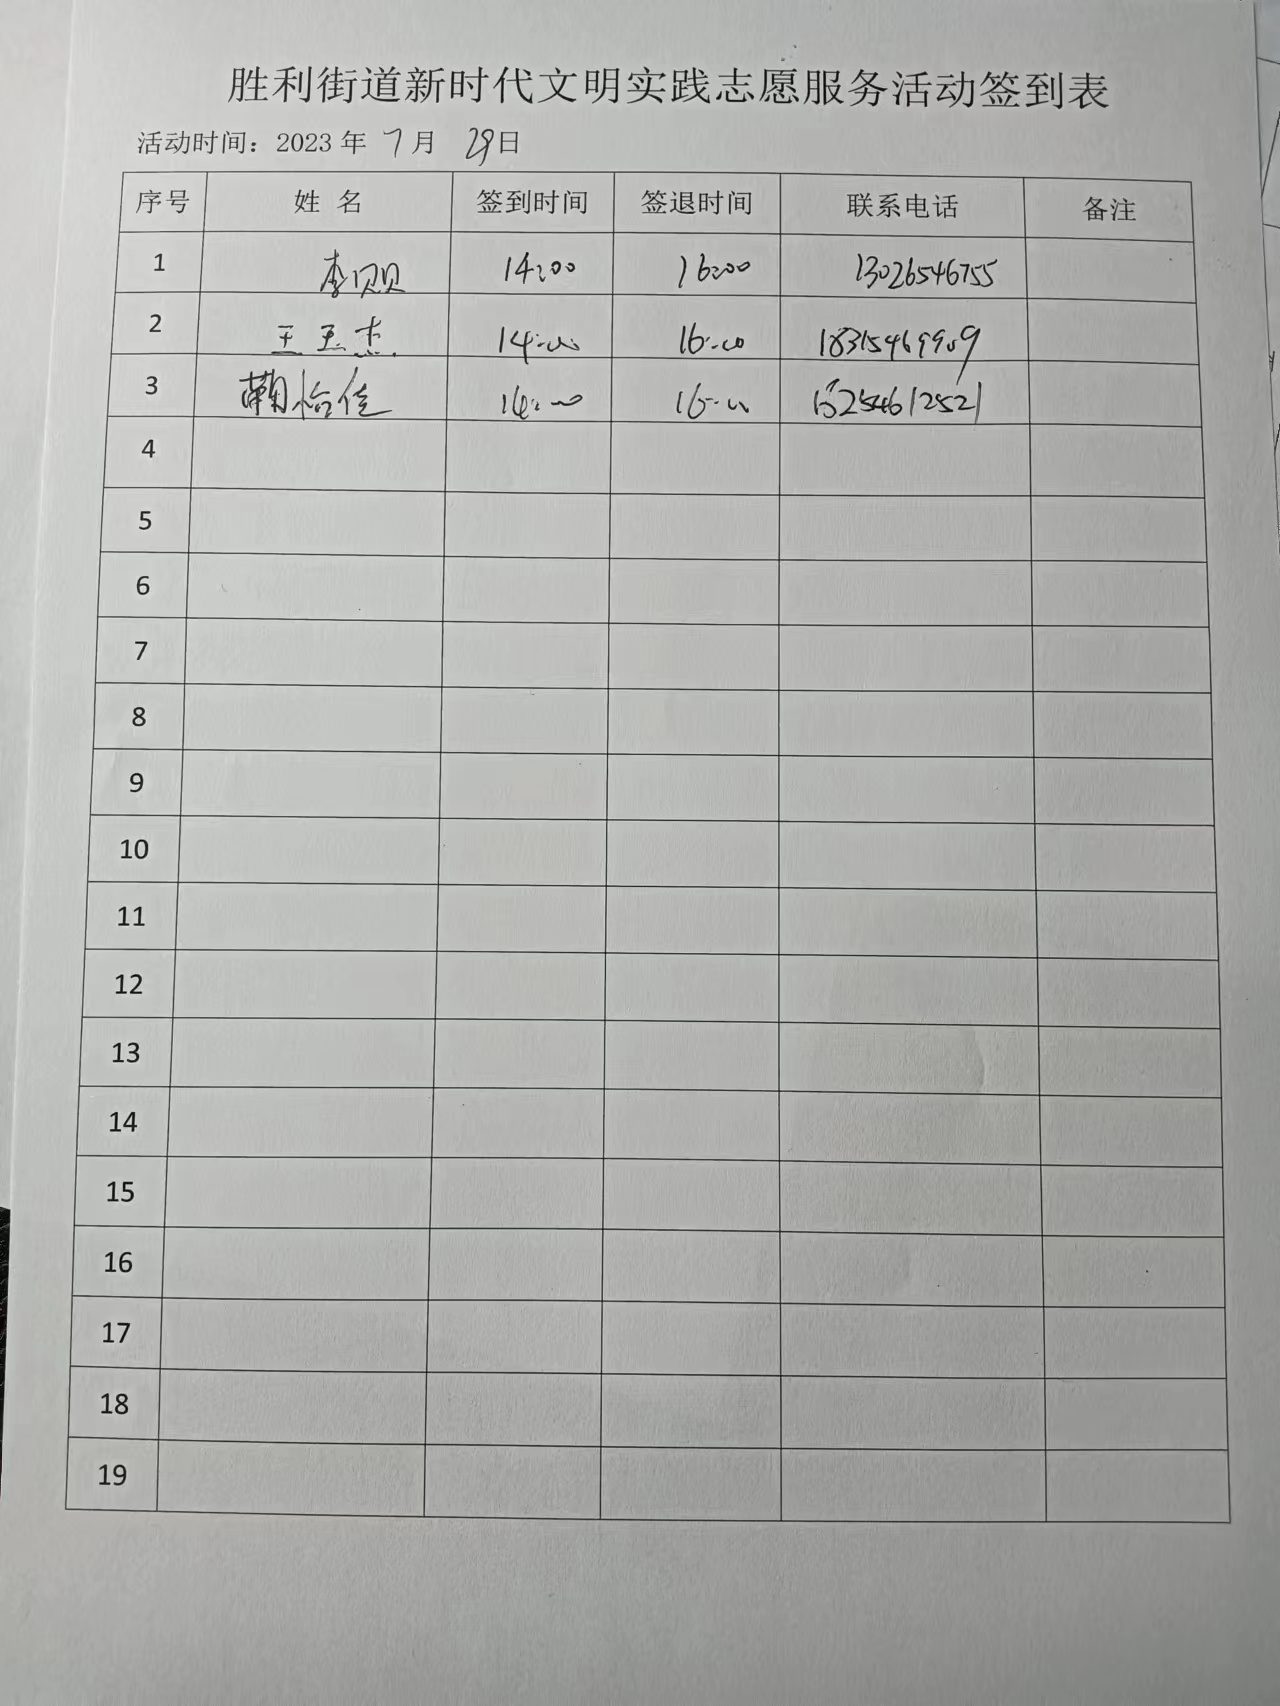 胜利街道新时代文明实践志愿服务活动签到表
活动时间：2023 年 7 月 29日
序号 姓 名 签到时间 签退时间 联系电话 备注
1 李贝贝 14:00 16:00 13026546755
2 王玉杰 14:00 16:00 18315469909
3 怡佳 14:00 16:00 15254612521
4
5
6
7
8
9
10
11
12
13
14
15
16
17
18
19